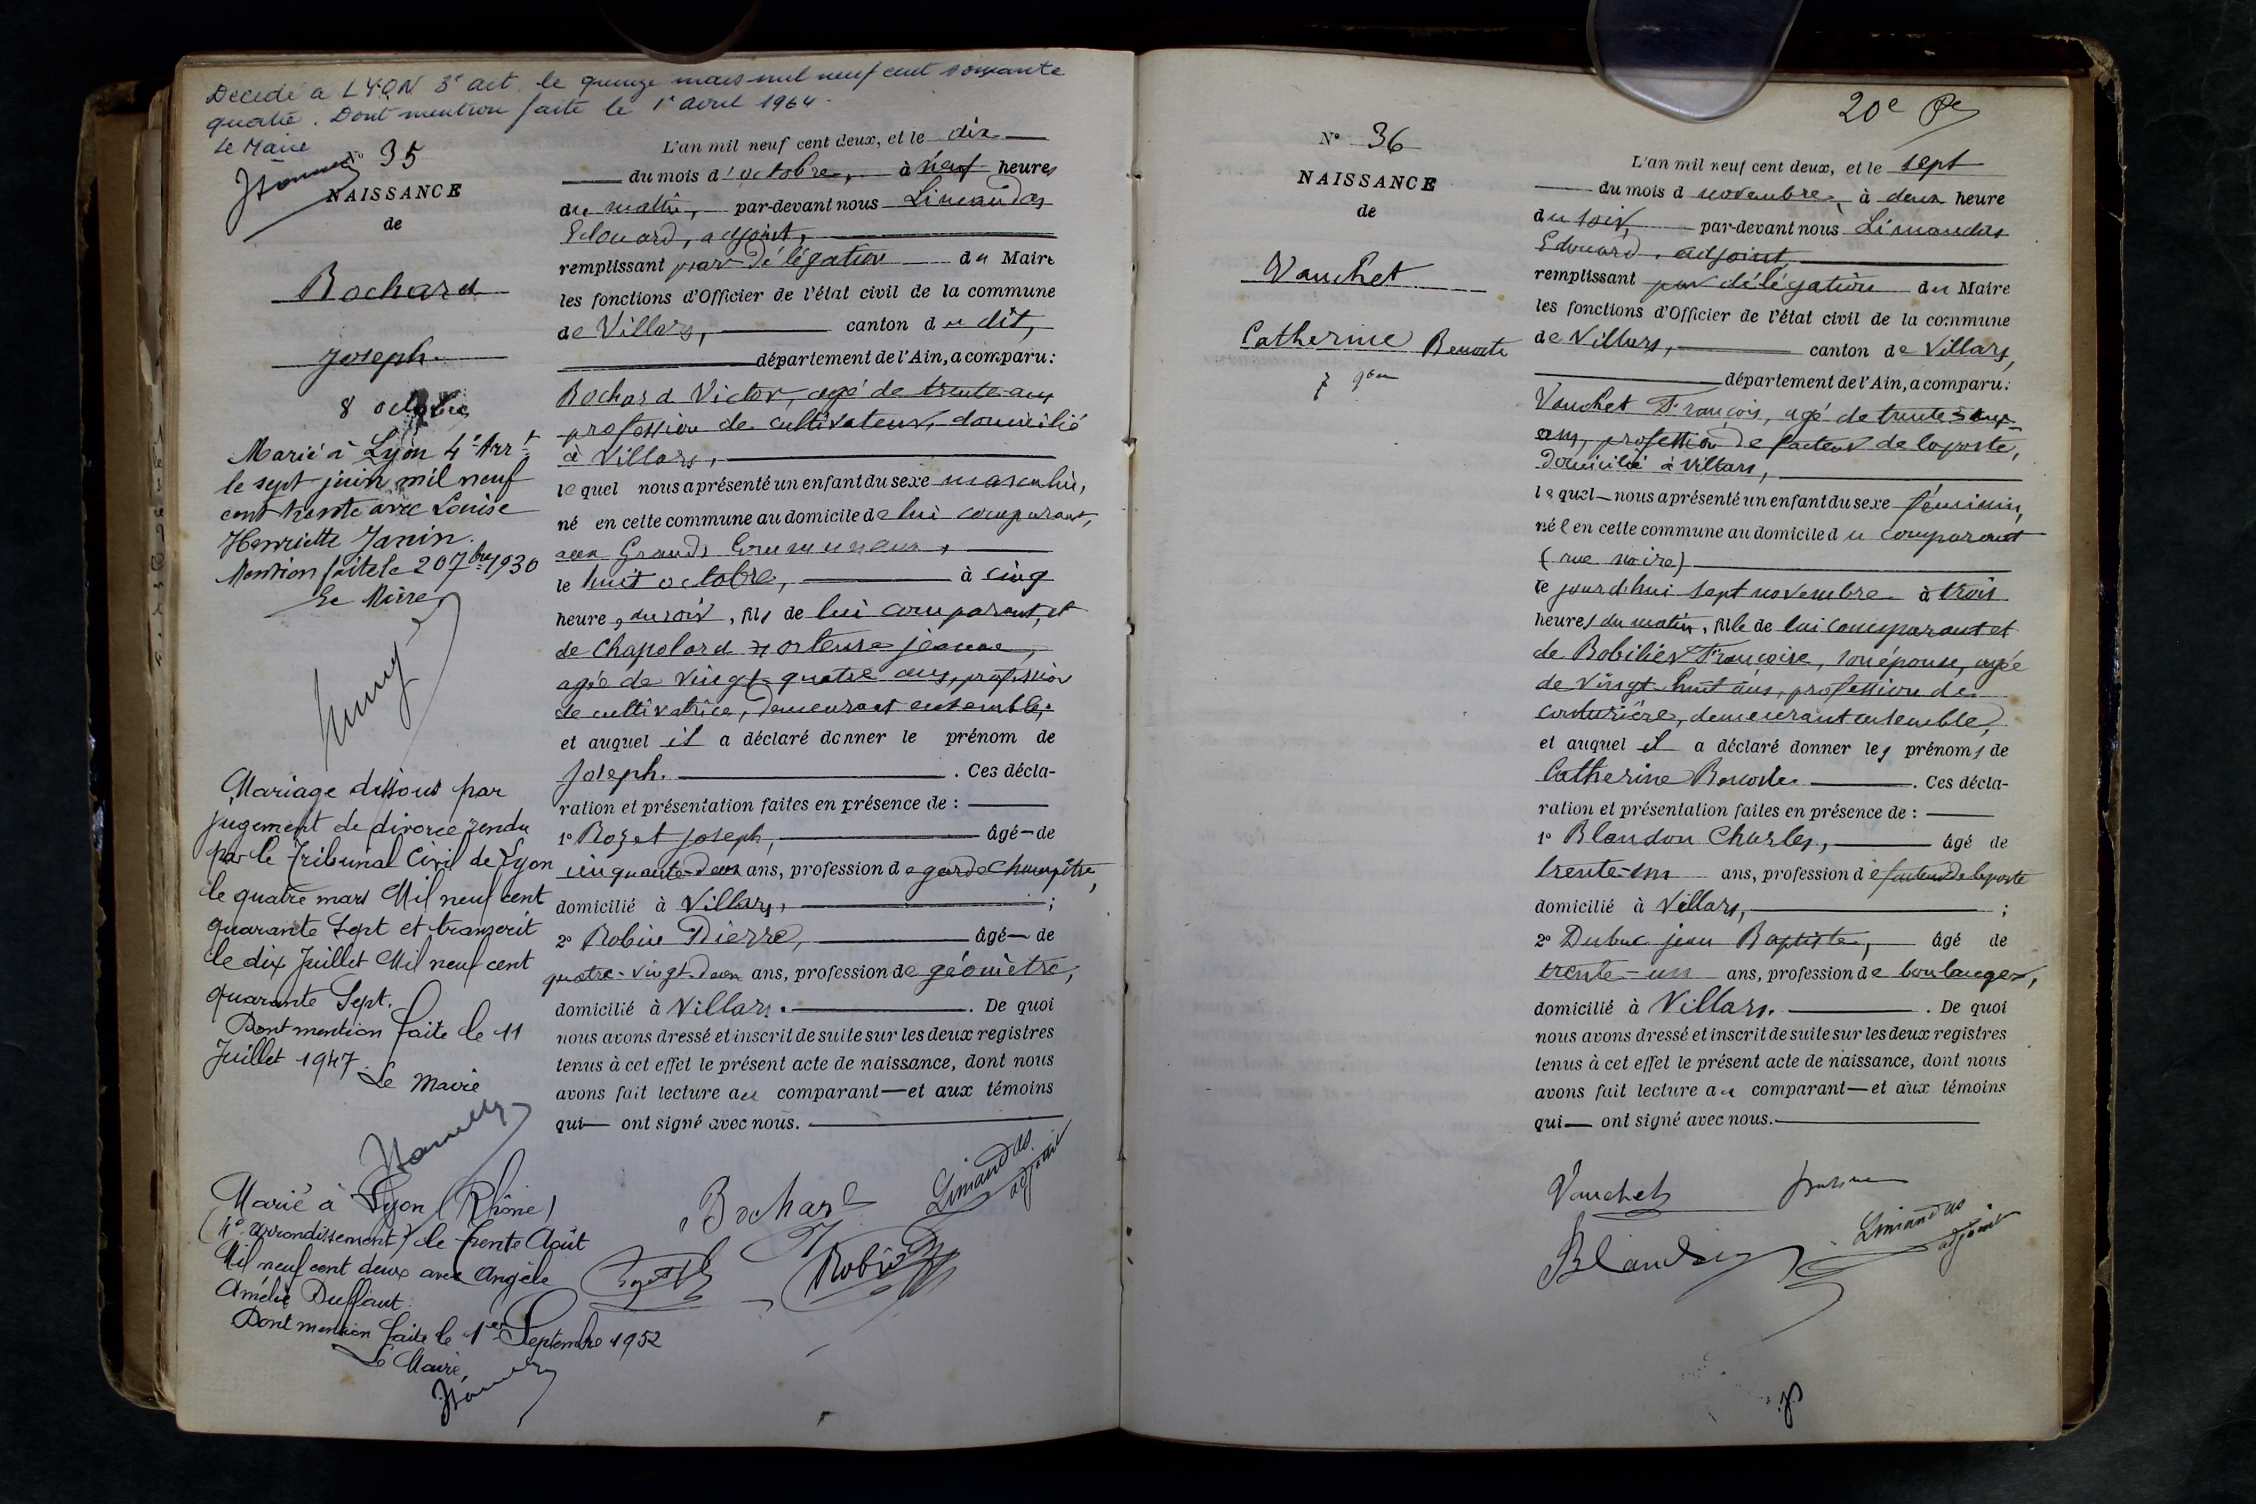 Décédé à LYON 3e art. le quinze mars mil neuf cent soixante
quatre. Dont mention faite le 1er avril 1964.
Le Maire
No 35
NAISSANCE
de
Bochard
Joseph.
8 octobre
Marié à Lyon 4e Arrt
le sept juin mil neuf
cent trente avec Louise
Henriette Janin.
Mention faite le 20 7bre 1930
Le Maire,
Mariage dissous par
jugement de divorce rendu
par le Tribunal Civil de Lyon
le quatre mars Mil neuf cent
quarante Sept et transcrit
le dix Juillet Mil neuf cent
quarante Sept.
Dont mention faite le 11
Juillet 1947.
Le Maire
Marié à Lyon (Rhône)
(4e arrondissement) le trente Août
Mil neuf cent deux avec Angèle
Amélie Duffaut.
Dont mention faite le 1er Septembre 1952
Le Maire,
L'an mil neuf cent deux, et le dix
du mois d'octobre, à neuf heures
du matin, par-devant nous Limandas
Edouard, adjoint,
remplissant par délégation du Maire
les fonctions d'Officier de l'état civil de la commune
de Villars, canton du dit,
département de l'Ain, a comparu:
Bochard Victor, agé de trente ans
profession de cultivateur, domicilié
à Villars,
lequel nous a présenté un enfant du sexe masculin,
né en cette commune au domicile de lui comparant,
aux Grands Communaux,
le huit octobre, à cinq
heures du soir, fils de lui comparant, et
de Chapolard Hortense jeanne,
agée de vingt-quatre ans, profession
de cultivatrice, demeurant ensemble,
et auquel il a déclaré donner le prénom de
Joseph. . Ces décla-
ration et présentation faites en présence de :
1o Rozet Joseph, âgé de
cinquante-deux ans, profession de garde champêtre,
domicilié à Villars, ;
2o Robin Pierre, âgé de
quatre-vingt-deux ans, profession de géomètre,
domicilié à Villars. . De quoi
nous avons dressé et inscrit de suite sur les deux registres
tenus à cet effet le présent acte de naissance, dont nous
avons fait lecture au comparant—et aux témoins
qui— ont signé avec nous.
Bochard
Limandas
adjoint
Robin
20e
No 36
NAISSANCE
de
Vauchet
Catherine Benoite
7 9bre
L'an mil neuf cent deux, et le sept
du mois d novembre, à deux heure
du soir, par-devant nous Limandas
Edouard, adjoint,
remplissant par délégation du Maire
les fonctions d'Officier de l'état civil de la commune
de Villars, canton de Villars,
département de l'Ain, a comparu:
Vauchet François, agé de trente
ans, profession de facteur de la poste,
domicilié à Villars,
lequel—nous a présenté un enfant du sexe féminin,
née en cette commune au domicile du comparant
(rue noire)
ce jourd'hui sept novembre à trois
heures du matin, fille de lui comparant et
de Bobillier Françoise, son épouse, agée
de vingt-huit ans, profession de
couturière, demeurant ensemble,
et auquel il a déclaré donner les prénoms de
Catherine Benoite . Ces décla-
ration et présentation faites en présence de :
1o Blandon Charles, âgé de
trente-un ans, profession de facteur de la poste
domicilié à Villars, ;
2o Dubuc jean Baptiste, âgé de
trente-un ans, profession de boulanger,
domicilié à Villars. . De quoi
nous avons dressé et inscrit de suite sur les deux registres
tenus à cet effet le présent acte de naissance, dont nous
avons fait lecture au comparant—et aux témoins
qui— ont signé avec nous.
Vauchet
Limandas
adjoint